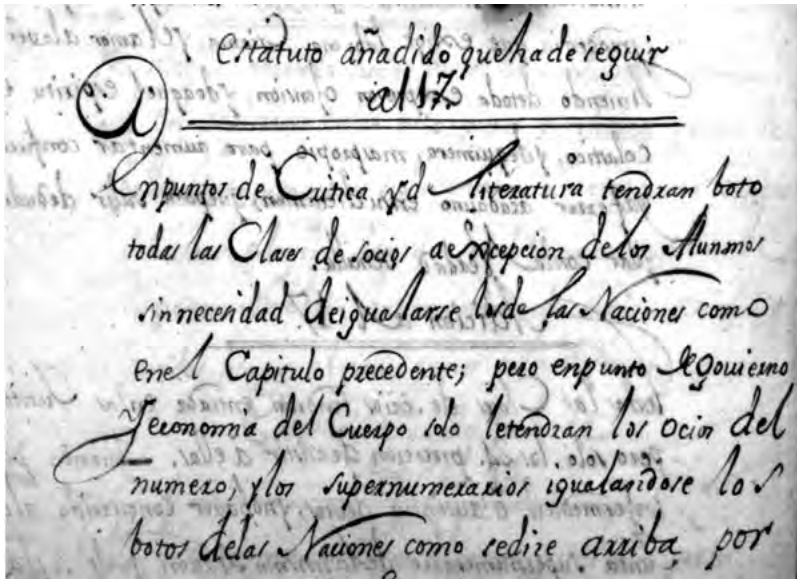 Estatuto añadido que ha de seguir
al 17.
En puntos de Critica y d literatura tendran boto
todas las Clases de socios a excepcion de los Alunmos
sin necesidad de igualarse los de las Naciones como
en el Capitulo precedente; pero en punto de govierno
y economia del Cuerpo solo le tendran los ocios del
numero, y los supernumerarios igualandose los
botos de las Naciones como se dire arriba por